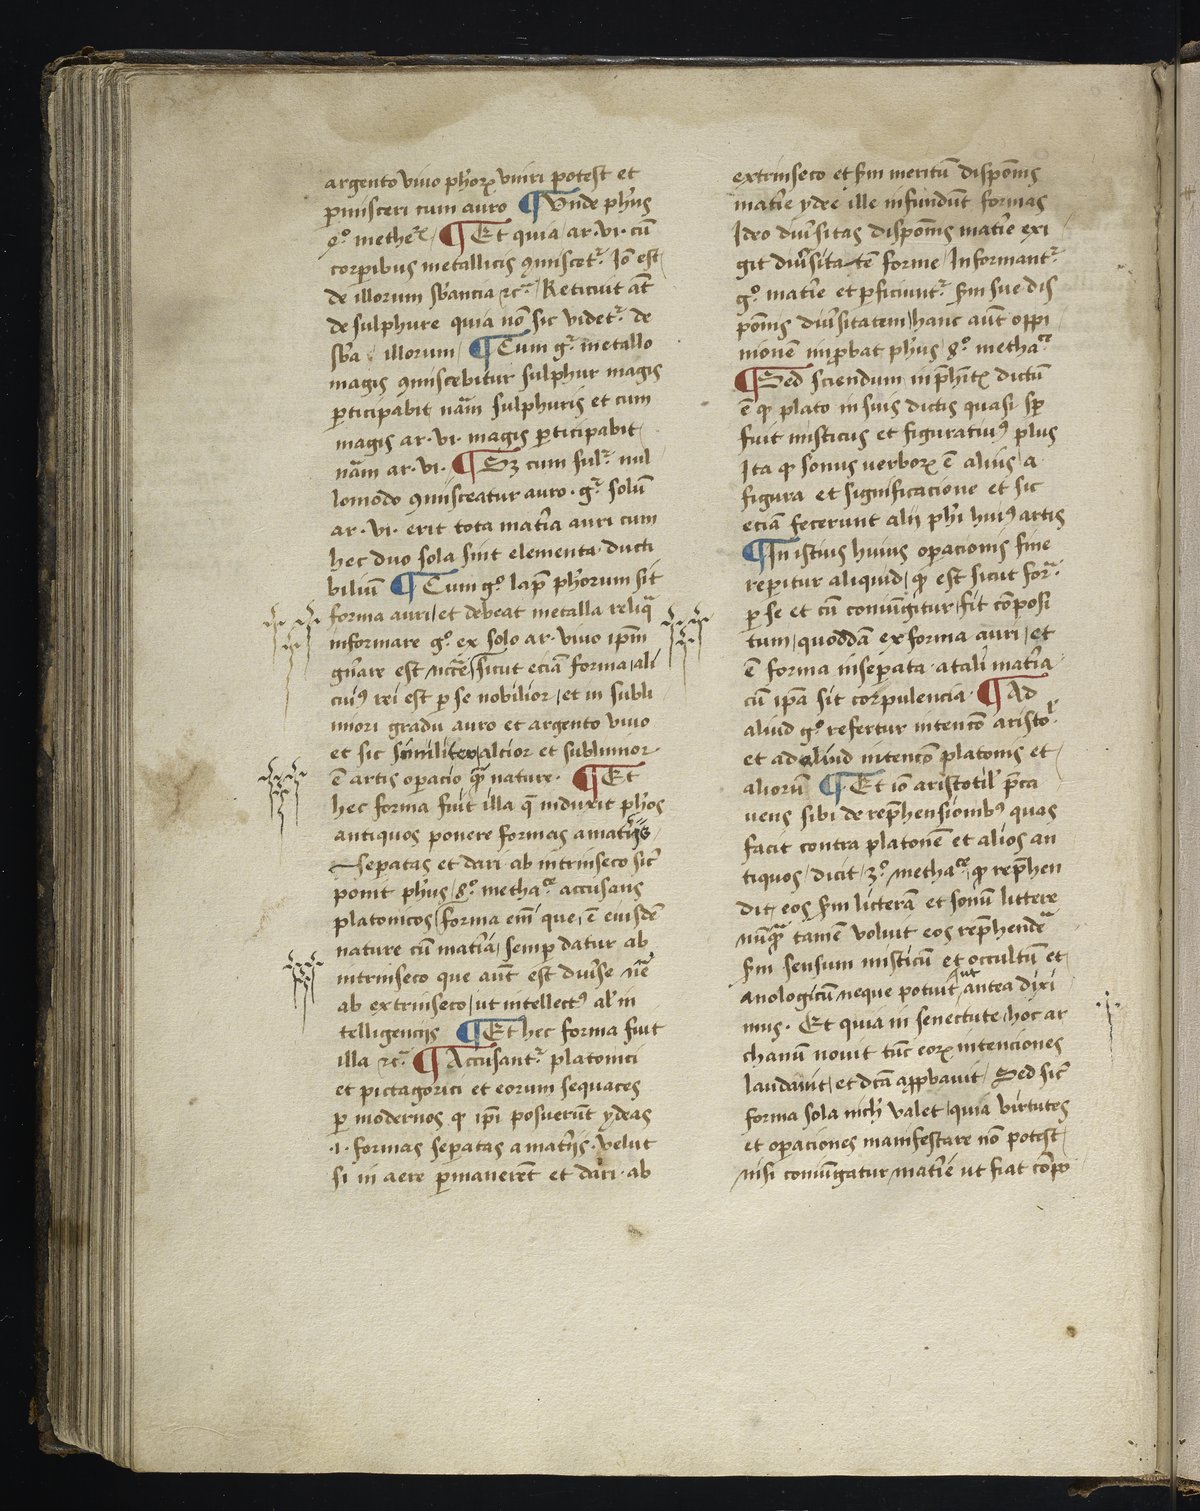 argento viuo ph'orꝝ vniri potest et
ꝑmisceri cum auro ¶ Vnde ph'us
4.º metheꝝ / ¶ Et quia ar. vi. cū
corꝑibus metallicis ꝯmiscetᷣ. Iō est /
de illorum sb'ancia ⁊cᷓ. / Reticuit āt
de sulphure quia nō sic videtᷣ. de
sb'a . illorum / ¶ Cum gᷣ. metallo
magis ꝯmiscebitur sulphur magis
ꝑticipabit nām sulphuris et cum
magis ar. vi. magis ꝑticipabit /
nām ar. vi. ¶ Sꝫ cum sulᷣ. nul
lomodo ꝯmisceatur auro . gᷣ. solū
ar. vi. erit tota mat'ia auri cum
hec duo sola sint elementa . ducti
biliū ¶ Cum gº. lap̄ ph'orum sit
forma auri / et debeat metalla reliqᷓ
informare gº. ex solo ar. viuo ip̄m
gn'are est nc̄cē / sicut eciā forma / ali
cuiꝰ rei est ꝑ se nobilior / et in subli
miori gradu auro et argento viuo
et sic similiter / alcior et sublimior .
ē artis oꝑacio qᷓꝫ nature . ¶ Et
hec forma fuit illa q̄ induxit ph'os
antiquos ponere formas a mat'ijs
seꝑatas et dari ab intrinseco sic'
ponit ph'us / 8.º methaᷓ. accusans
platonicos / forma em̄ que / ē eiusdē
nature cū mat'ia / semꝑ datur ab
intrinseco que aūt est diu'se nē
ab extrinseco / ut intellectꝰ al' in
telligencijs ¶ Et hec forma fuit
illa ⁊cᷓ. ¶ Accusantᷣ. platonici
et pictagorici et eorum sequaces
ꝑ modernos ꝙ ip̄i posuerūt ydeas
.i. formas seꝑatas a mat'ijs . velut
si in aere ꝑmanerēt et dari . ab
extrinseco et sᷤm meritū dispōnis
mat'ie ydee ille infundūt formas
Ideo diu'sitas dispōnis mat'ie exi
git diu'sita tē forme / Informantᷣ.
gº. mat'ie et ꝑficiuntᷣ. sᷤm sue dis
pōnis diu'sitatem / hanc aūt oppi
nionē imꝓbat ph'us / 8.º methaᷓ.
¶ Sed sciendum / in p̄hītꝫ dictū
ē ꝙ plato in suis dictis quasi sꝑ
fuit misticus et figuratiuꝰ plus
Ita ꝙ sonus uerborꝝ ē alius / a
figura et significacione et sic
eciā fecerunt alij ph'i huiꝰ artis
¶ In istius huius oꝑacionis fine
reꝑitur aliquid / qᷓ est sicut forᷓ.
ꝑ se et cū coniūgitur / fit cōposi
tum / quoddā ex forma auri / et
ē forma inseꝑata . a tali mat'ia .
cū ip̄a sit corpulencia . ¶ Ad
aliud gº. refertur intencō aristoᷣ.
et ad aliud intencō platonis et /
aliorū ¶ Et iō aristotil' p̄ca
uens sibi de rep̄hensionibꝰ quas
facit contra platonē et alios an
tiquos / dicit / 3.º methaᷓ. ꝙ rep̄hen
dit / eos sᷤm litterā et sonū littere
nūqᷓꝫ tamē voluit eos rep̄hendeᷓ
sᷤm sensum misticū et occultū et /
anologicū neque potuit / ut antea dixi
mus . Et quia in senectute / hoc ar
chanū nouit tūc eorꝝ intenciones
laudauit / et dc̄ā apꝓbauit / Sed sic'
forma sola nich' valet / quia virtutes
et oꝑaciones manifestare nō potest /
nisi coniūgatur mat'ie ut fiat cōpo